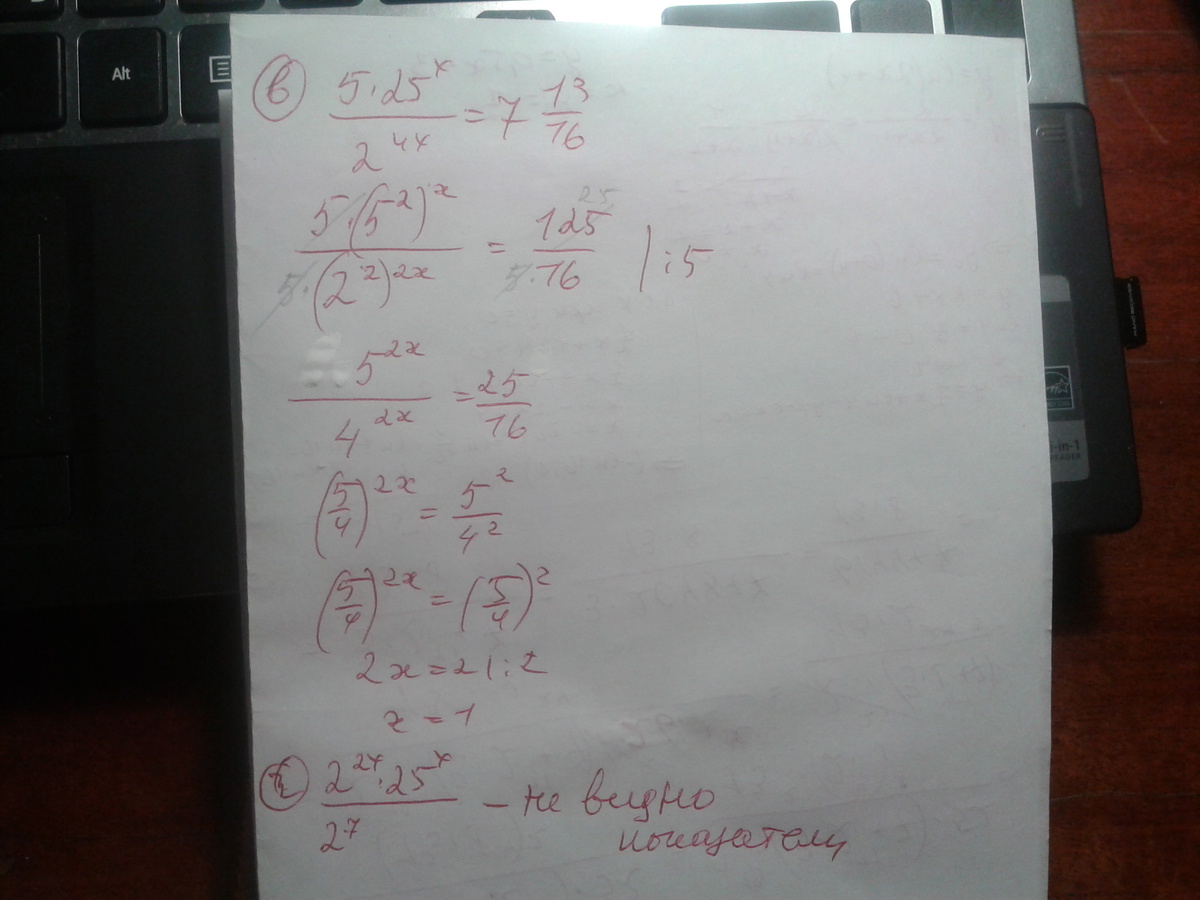 Alt
в) (5·25^x)/(2^(4x)) = 7 13/16
(5·(5^2)^x)/(5·(2^2)^(2x)) = 125/(5·16) |:5
25
5^(2x)/4^(2x) = 25/16
(5/4)^(2x) = 5^2/4^2
(5/4)^(2x) = (5/4)^2
2x = 2 |:2
x = 1
(2^(2x)·25^x)/2^7 – не видно
показатели